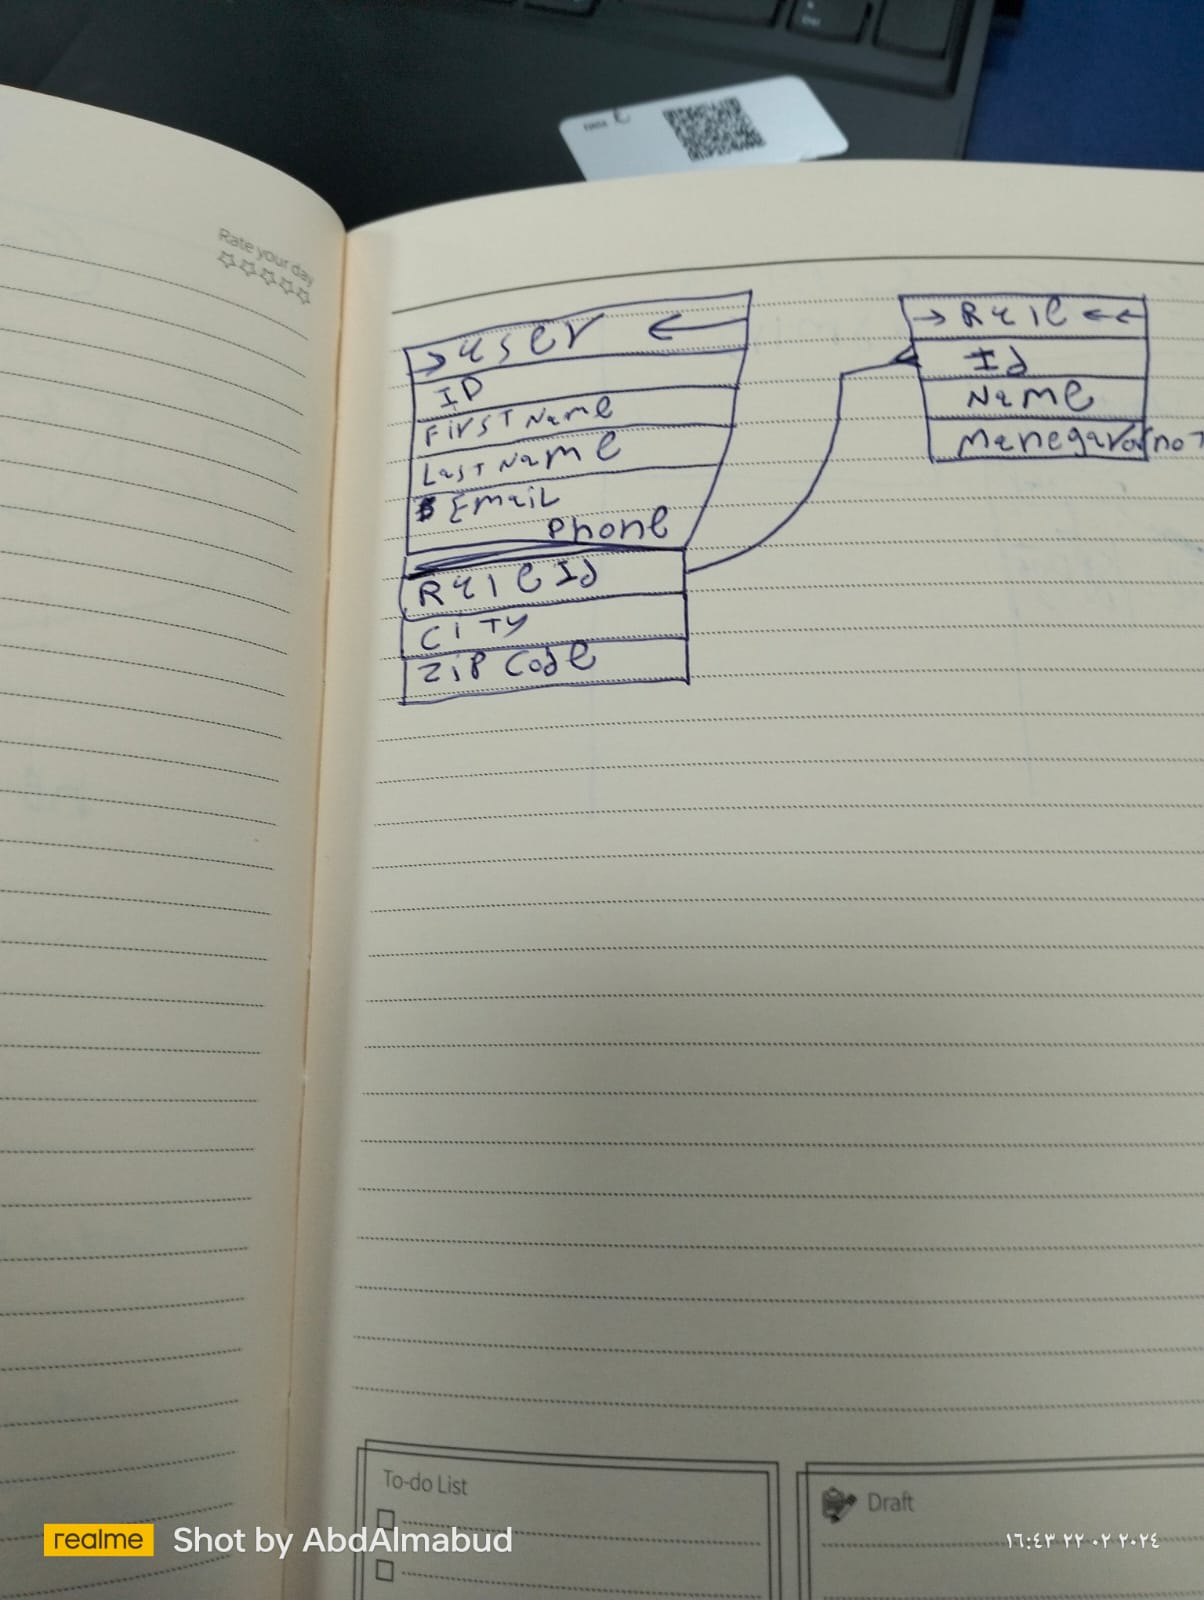 Rate your day
→ user ←
ID
First Name
Last Name
Email
Phone
Rule Id
City
Zip Code
→ Rule ←←
Id
Name
Manegar or not
To-do List
Draft
realme
Shot by AbdAlmabud
١٦:٤٣ ٢٢.٠٢.٢٠٢٤